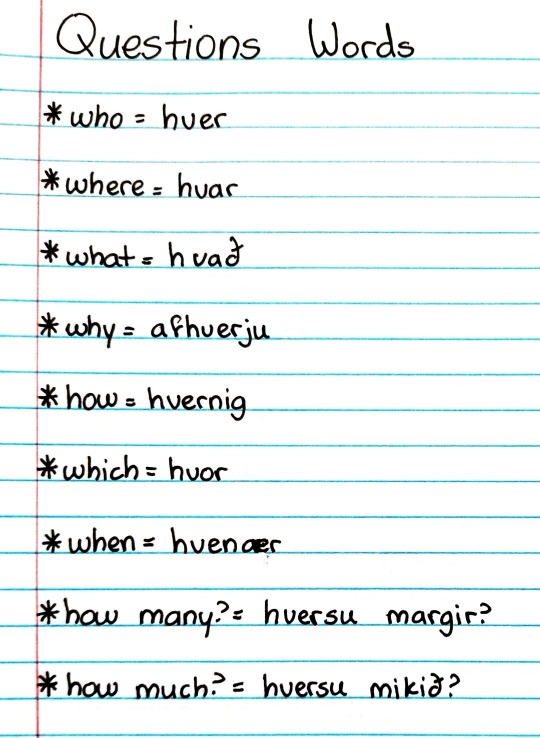 Questions Words
* who = hver
* where = hvar
* what = hvað
* why = afhverju
* how = hvernig
* which = hvor
* when = hvenær
* how many? = hversu margir?
* how much? = hversu mikið?